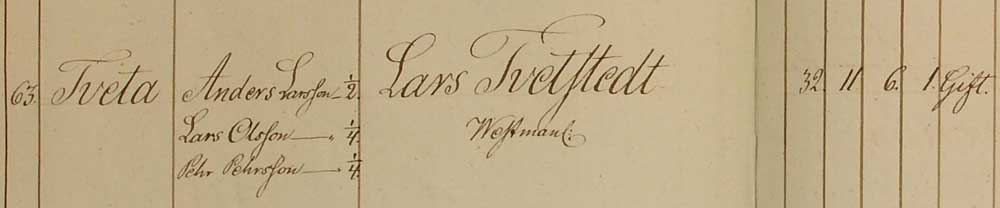 63. Tveta Anders Larsson ½. Lars Tvetstedt 32. 11 6. 1. Gift.
Lars Olsson ¼. Westmanl:
Pehr Pehrsson ¼.